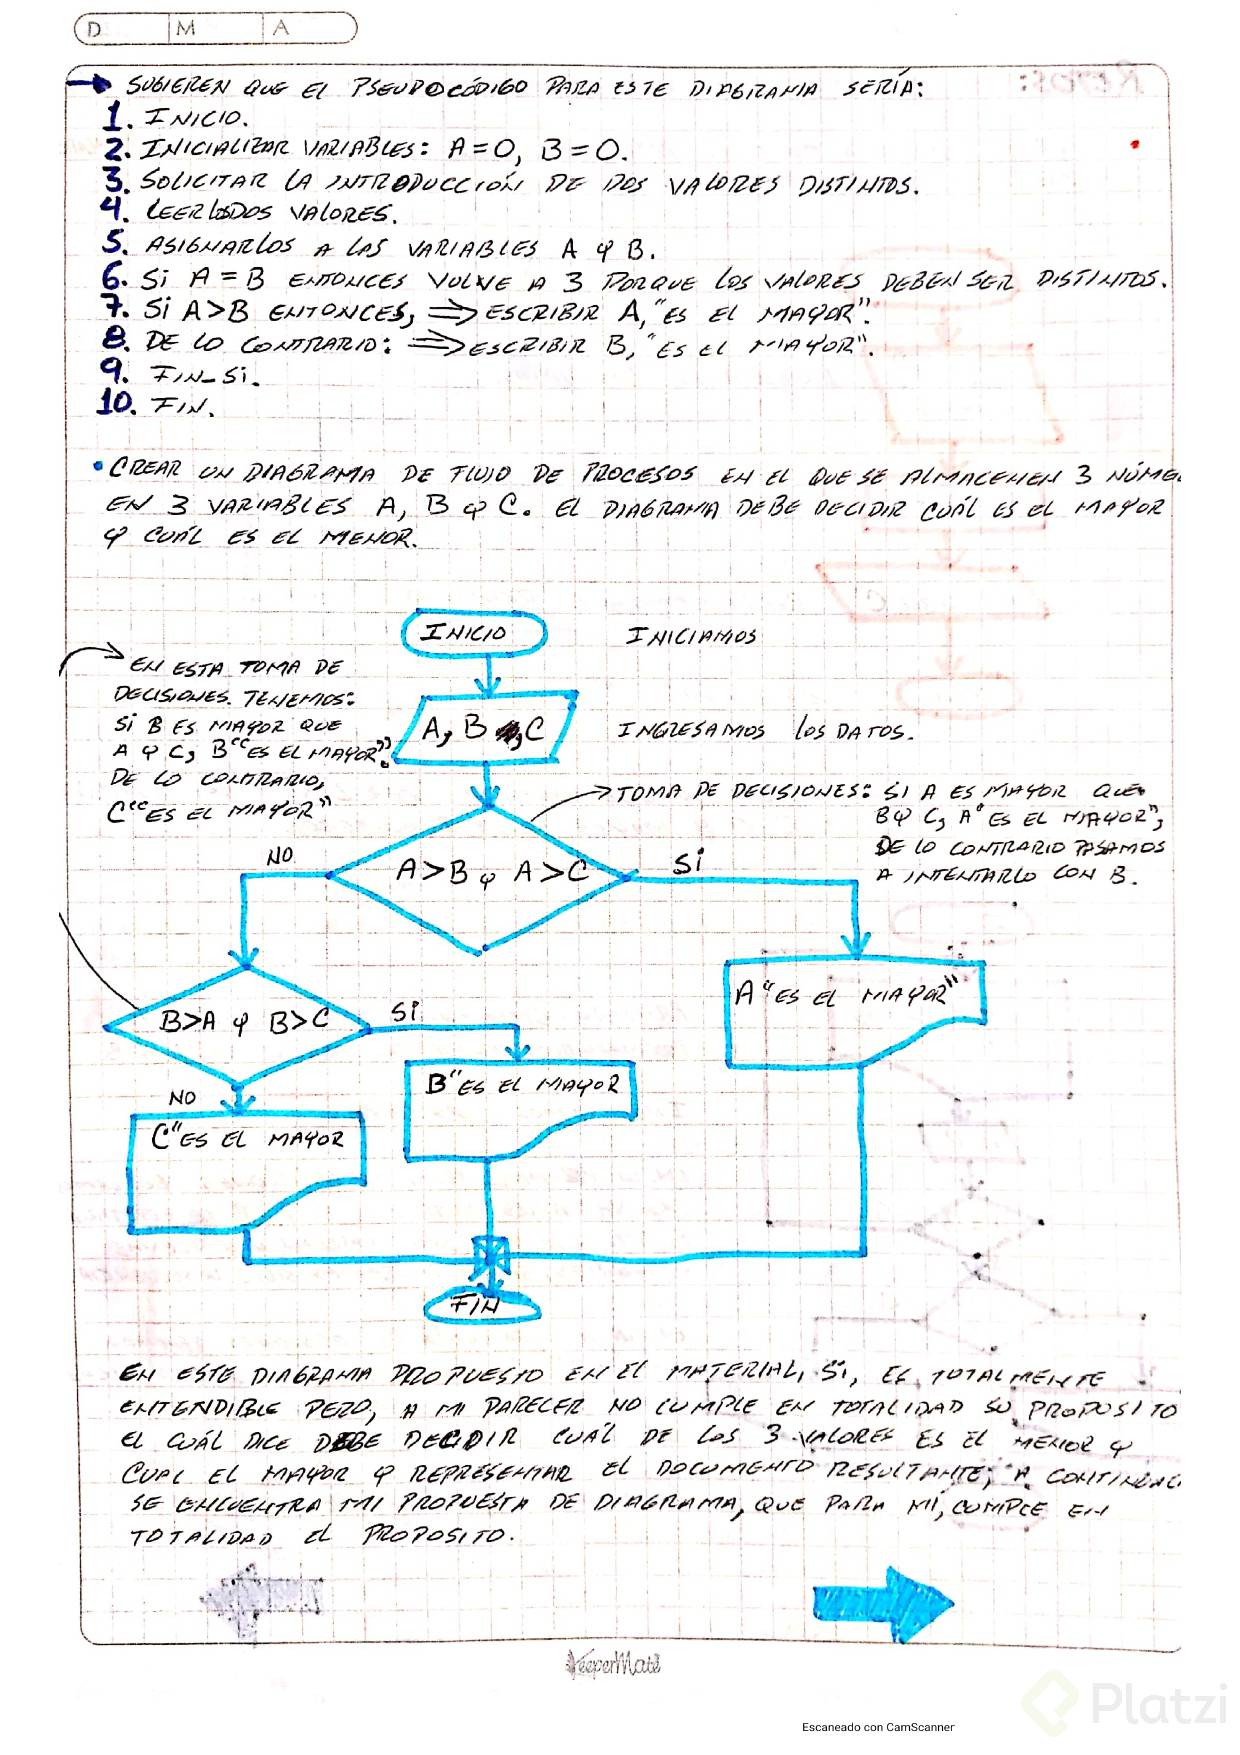 D M A
SUGIEREN QUE El PSEUDOCÓDIGO PARA ESTE DIAGRAMA SERÍA:
1. INICIO.
2. INICIALIZAR VARIABLES: A=0, B=0.
3. SOLICITAR LA INTRODUCCIÓN DE DOS VALORES DISTINTOS.
4. LEER LOS DOS VALORES.
5. ASIGNARLOS A LAS VARIABLES A Y B.
6. Si A = B ENTONCES VUELVE A 3 PORQUE LOS VALORES DEBEN SER DISTINTOS.
7. Si A>B ENTONCES, ⇒ ESCRIBIR A, "ES EL MAYOR".
8. DE LO CONTRARIO: ⇒ ESCRIBIR B, "ES EL MAYOR".
9. FIN_Si.
10. FIN.
• CREAR UN DIAGRAMA DE FLUJO DE PROCESOS EN EL QUE SE ALMACENEN 3 NÚME
EN 3 VARIABLES A, B Y C. El DIAGRAMA DEBE DECIDIR CUÁL ES EL MAYOR
Y CUÁL ES EL MENOR.
INICIO
INICIAMOS
A, B, C
INGRESAMOS los DATOS.
EN ESTA TOMA DE
DECISIONES. TENEMOS:
Si B ES MAYOR QUE
A Y C, B "ES EL MAYOR".
DE LO CONTRARIO,
C "ES EL MAYOR"
TOMA DE DECISIONES: Si A ES MAYOR QUE
B Y C, A "ES EL MAYOR",
DE LO CONTRARIO PASAMOS
A INTENTARLO CON B.
A>B Y A>C
NO
Si
A "ES EL MAYOR"
B>A Y B>C
Si
B "ES EL MAYOR
NO
C "ES EL MAYOR
FIN
EN ESTE DIAGRAMA PROPUESTO EN El MATERIAL, Si, ES TOTALMENTE
ENTENDIBLE PERO, A MI PARECER NO CUMPLE EN TOTALIDAD SU PROPOSITO
EL CUÁL DICE DEBE DECIDIR CUÁL DE LOS 3 VALORES ES EL MENOR Y
CUAL EL MAYOR Y REPRESENTAR EL DOCUMENTO RESULTANTE, A CONTINUAC
SE ENCUENTRA MI PROPUESTA DE DIAGRAMA, QUE PARA MI, CUMPLE EN
TOTALIDAD El PROPOSITO.
KeeperMate
Platzi
Escaneado con CamScanner